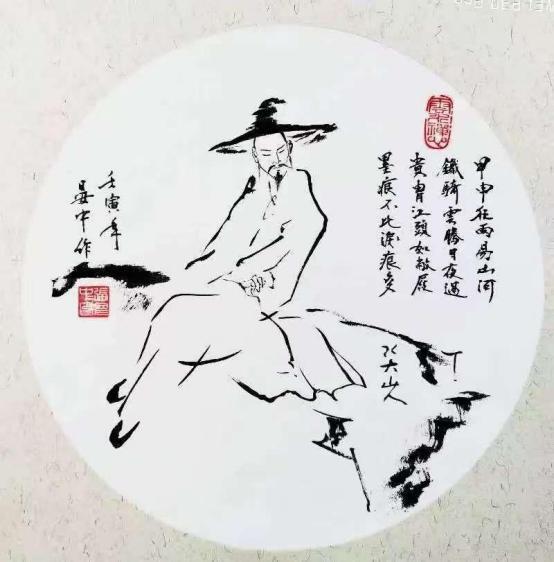 甲申狂雨易山河
鐵騎雲騰日夜過
貴胄江頭如敝屣
墨痕不比淚痕多
八大山人
壬寅年
晏中作